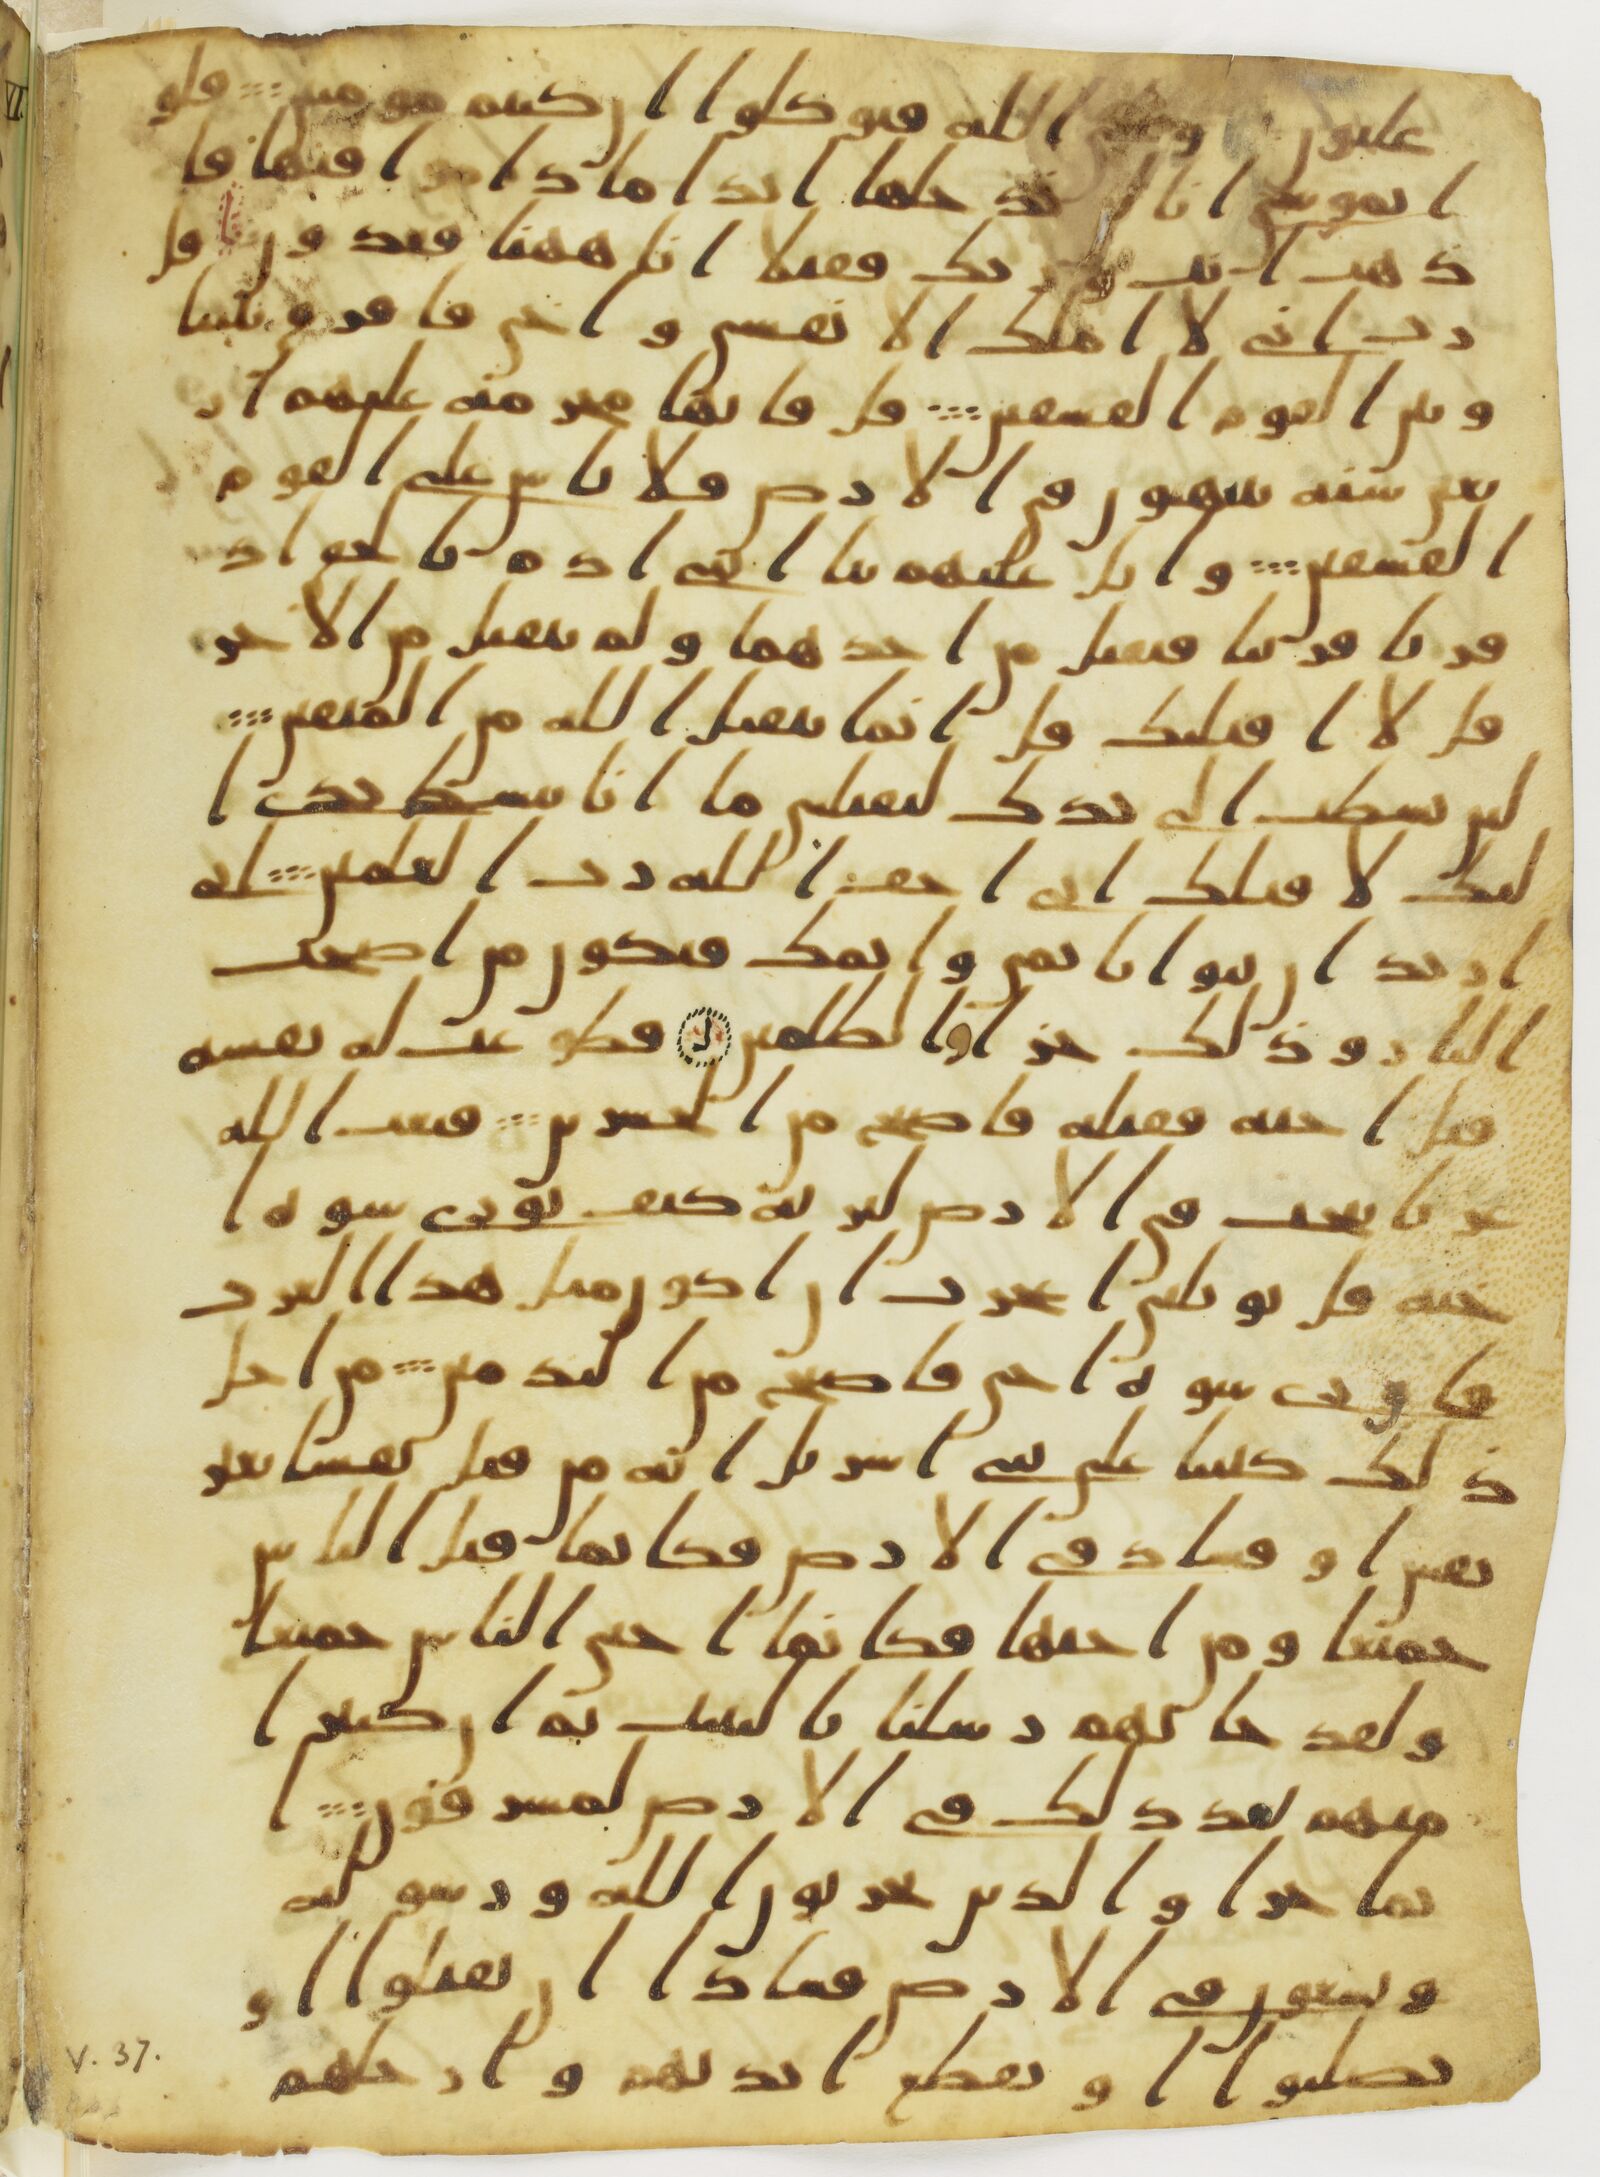 غلبون وعلى الله فتوكلوا ان كنتم مومنين قلو
ا يموسى انا لن ندخلها ابدا ما داموا فيها فا
ذهب انت وربك فقتلا انا ههنا قعدون قل
رب اني لا املك الا نفسي واخي فافرق بيننا
وبين القوم الفسقين قل فانها محرمة عليهم ار
بعين سنة يتيهون في الارض فلا تاس على القوم
الفسقين واتل عليهم نبا ابني ادم بالحق اذ
قربا قربنا فتقبل من احدهما ولم يتقبل من الاخر
قل لا اقتلنك قل انما يتقبل الله من المتقين
لين بسطت الي يدك لتقتلني ما انا ببسط يدي ا
ليك لا قتلك اني اخف الله رب العلمين اني
اريد ان تبوا باثمي واثمك فتكون من اصحب
النار وذلك جزاوا الظلمين فطوعت له نفسه
قتل اخيه فقتله فاصبح من الخسرين فبعث الله
غربا يبحث في الارض ليريه كيف يوري سوه ا
خيه قل يويلتى اعجزت ان اكون مثل هذا الغرب
فاوري سوه اخي فاصبح من الندمين من اجل
ذلك كتبنا على بني اسريل انه من قتل نفسا بغير
نفس او فساد في الارض فكانما قتل الناس
جميعا ومن احيها فكانما احيى الناس جميعا
ولقد جاتهم رسلنا بالبينت ثم ان كثيرا
منهم بعد ذلك في الارض لمسرفون ا
نما جزاوا الذين يحربون الله ورسوله
ويسعون في الارض فسادا ان يقتلوا او
يصلبوا او تقطع ايديهم وارجلهم
V. 37.